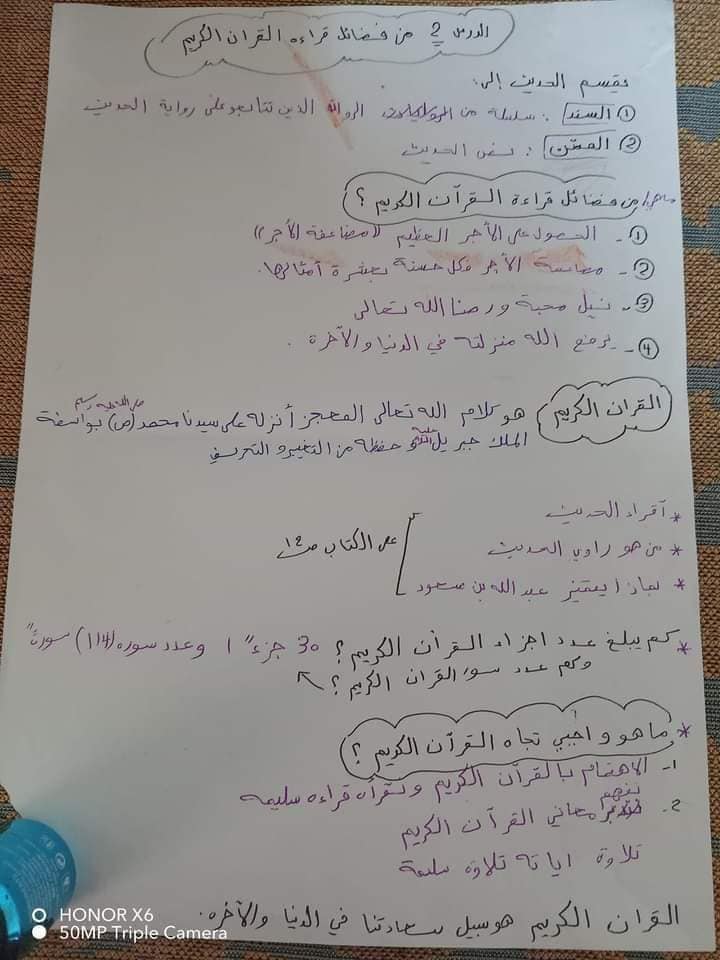 الدرس 2 من فضائل قراءه القران الكريم
يقسم الحديث إلى:
① السند: سلسلة من الرواة الذين تتابعو على رواية الحديث
② المتن: نص الحديث
ماهي/ من فضائل قراءة القرآن الكريم؟
①- الحصول على الأجر العظيم ((مضاعفة الأجر))
②- مضاعفة الأجر فكل حسنة بعشرة أمثالها.
③- نيل محبة ورضا الله تعالى
④- يرفع الله منزلته في الدنيا والآخرة.
القران الكريم هو كلام الله تعالى المعجز أنزله على سيدنا محمد (ص) بواسطة
صلى الله عليه وسلم
الملك جبريل عليه السلام حفظه من التغير و التحريف
* أقراء الحديث
* من هو راوي الحديث
على الكتاب ص ١٢
* بماذا يتميز عبد الله بن مسعود
* كم يبلغ عدد اجزاء القرآن الكريم؟ 30 جزء"ا وعدد سوره (114) سورة"
وكم عدد سور القران الكريم؟
* ما هو واجبي تجاه القرآن الكريم؟
1- الاهتمام بالقرآن الكريم ونقرأه قراءه سليمه
2- نفهم معاني القرآن الكريم
تلاوة اياته تلاوه سليمة
القران الكريم هو سبيل سعادتنا في الدنيا والآخره.
HONOR X6
50MP Triple Camera